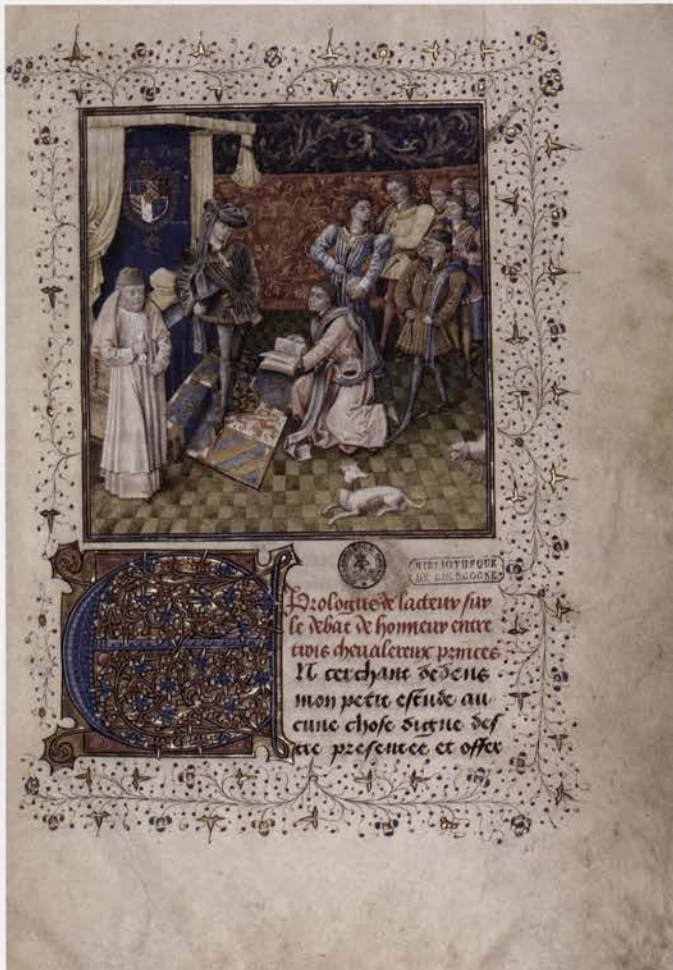 BIBLIOTHEQUE
DE BOURGOGNE
Prologue de lacteur sur
le debat de honneur entre
trois cheualereux princes
EN cerchant dedens
mon petit estude au
cune chose digne des
tre presentee et offer